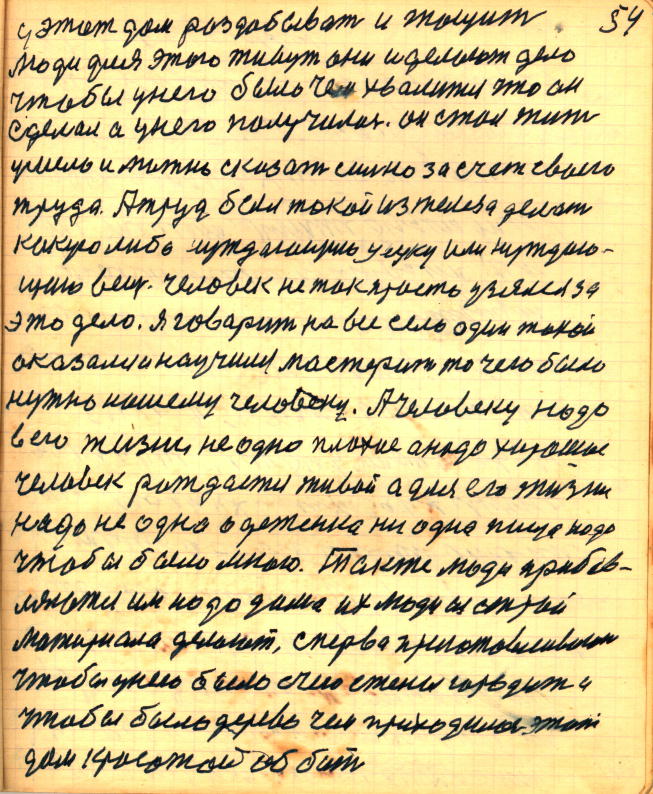 у этот дом раздобыват и тощит 54
люди для этого живут они и делают дело
чтобы унего было чем хвалится что он
сделал а унего получилос. он стал жит
умело и можно сказат силно за счет своего
труда. А труд был такой из железа делат
какуюлибо нуждающуюся уеуку или нуждаю-
щию вещ. человек не так просто узялся за
это дело. Я говарит на все село один такой
оказался и научился мастерит то чего было
нужно нашему человеку. А человеку надо
в его жизни не одно плохое а надо хорошое
человек рождается живой а для его жизни
надо не одна одеженка ни одна пища надо
чтобы было много. Также люди прибав-
ляются им надо дома их люди из
материала делают, сперва приготовливают
чтобы унего было с чего стены городит и
чтобы было дерево чем приходилос этот
дом красотой об бит